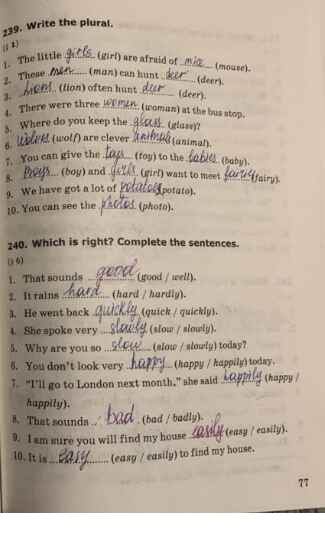 239. Write the plural.
(§ 1)
1. The little girls (girl) are afraid of mice (mouse).
2. These men (man) can hunt deer (deer).
3. Lions (lion) often hunt deer (deer).
4. There were three women (woman) at the bus stop.
5. Where do you keep the glass (glass)?
6. Wolves (wolf) are clever animals (animal).
7. You can give the toys (toy) to the babies (baby).
8. Boys (boy) and girls (girl) want to meet (fairy).
9. We have got a lot of potatoes (potato).
10. You can see the photos (photo).
240. Which is right? Complete the sentences.
(§ 6)
1. That sounds good (good / well).
2. It rains hard (hard / hardly).
3. He went back quickly (quick / quickly).
4. She spoke very slowly (slow / slowly).
5. Why are you so slow (slow / slowly) today?
6. You don't look very happy (happy / happily) today.
7. "I'll go to London next month," she said happily (happy /
happily).
8. That sounds bad (bad / badly).
9. I am sure you will find my house easily (easy / easily).
10. It is easy (easy / easily) to find my house.
77